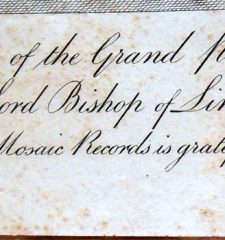 of the Grand
Lord Bishop of Lin
Mosaic Records is grate